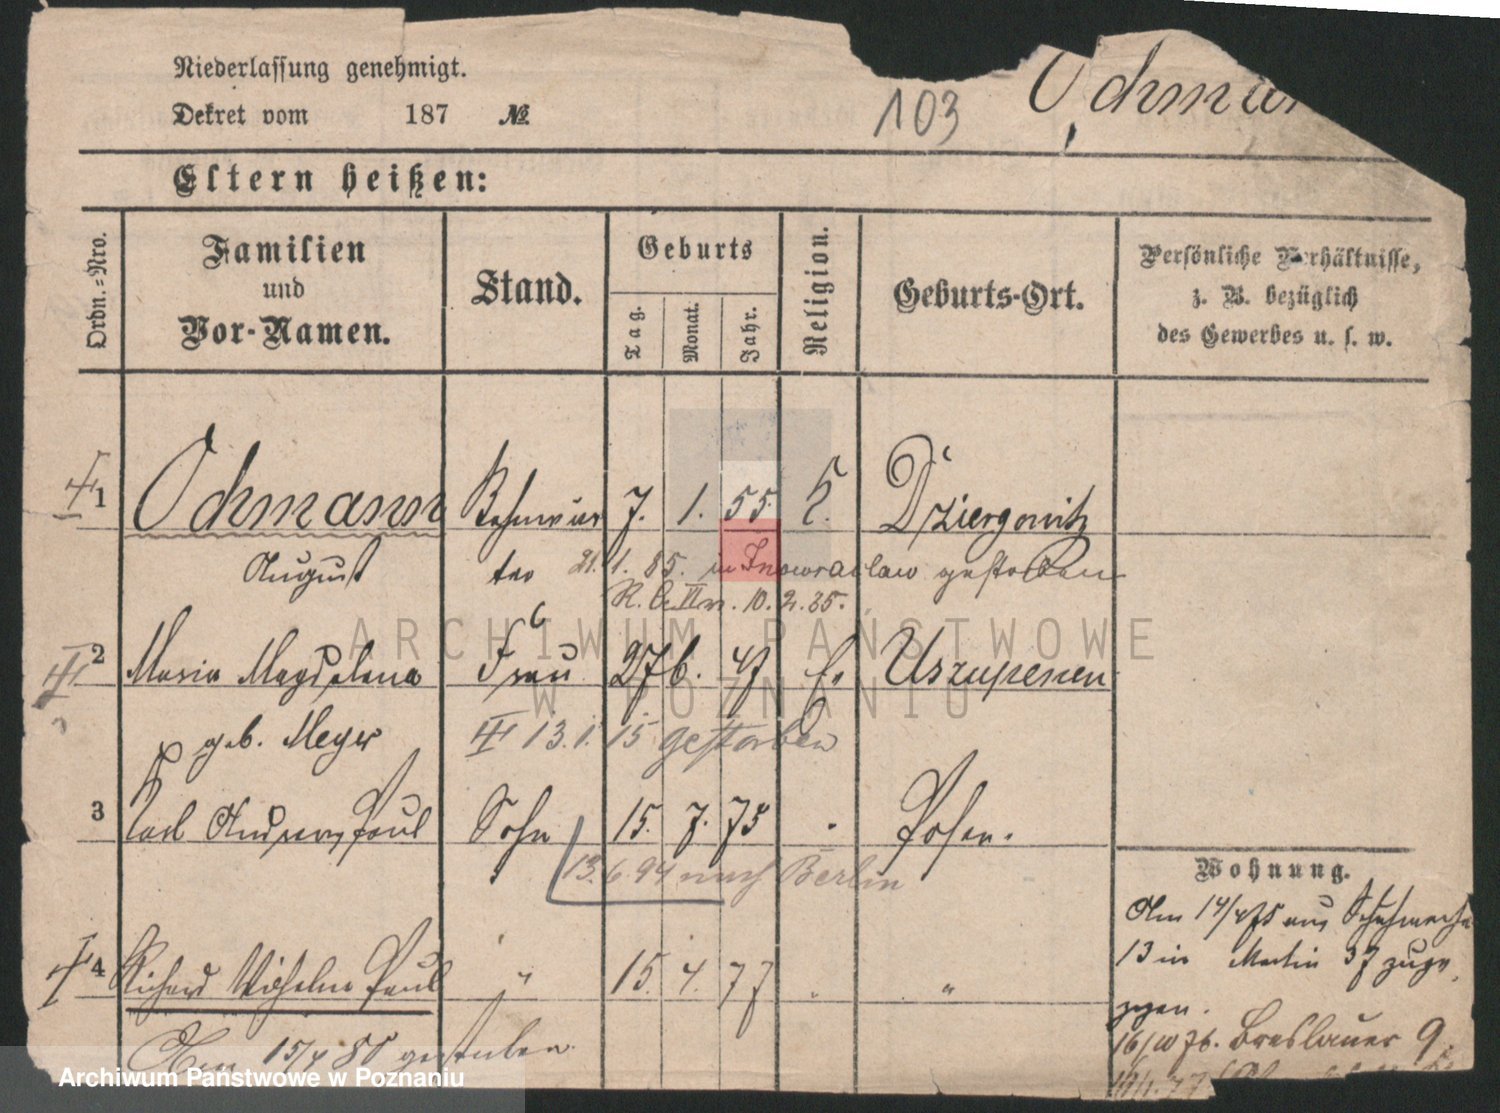 Niederlassung genehmigt.
Dekret vom 187 №
103
Ochman
Eltern heißen:
Ordn.-Nro.
Familien
und
Vor-Namen.
Stand.
Geburts
Tag.
Monat.
Jahr.
Religion.
Geburts-Ort.
Persönliche Verhältnisse,
z. B. bezüglich
des Gewerbes u. s. w.
1 Ochmann 7. 1. 55. Dziergowitz
August ter 21. 1. 85. in Inowraclaw gestorben
10. 2. 85.
2 Maria Magdalena Frau 27 6. 47 Uszupenen
geb. Meyer 13. 1. 15 gestorben
3 Carl Andreas Paul Sohn 15. 7. 75 Posen.
13. 6. 94 nach Berlin
Wohnung.
Am 14/4 75 aus
13 in Martin 37 zuge
zogen.
4 Richard Wilhelm Paul " 15. 4. 77 " "
16/10 76. Breslauer 9.
Am 15/4 80 gestorben
ARCHIWUM PAŃSTWOWE
W POZNANIU
Archiwum Państwowe w Poznaniu